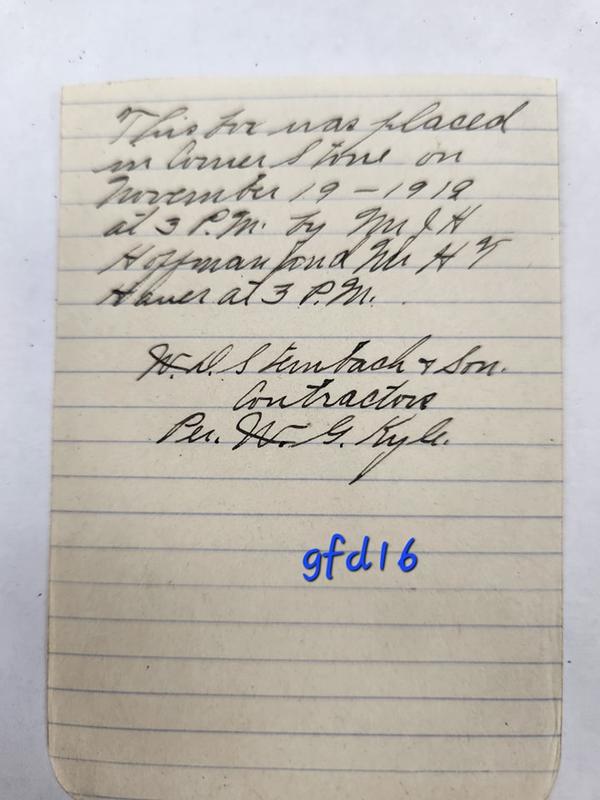 This box was placed
in Corner Stone on
November 19 - 1919
at 3 P.M. by Mr J H
Hoffman and Mr H T
Haver at 3 P.M.
W. D. Steinbach & Son.
Contractors
Per. W. G. Kyle.
gfd16